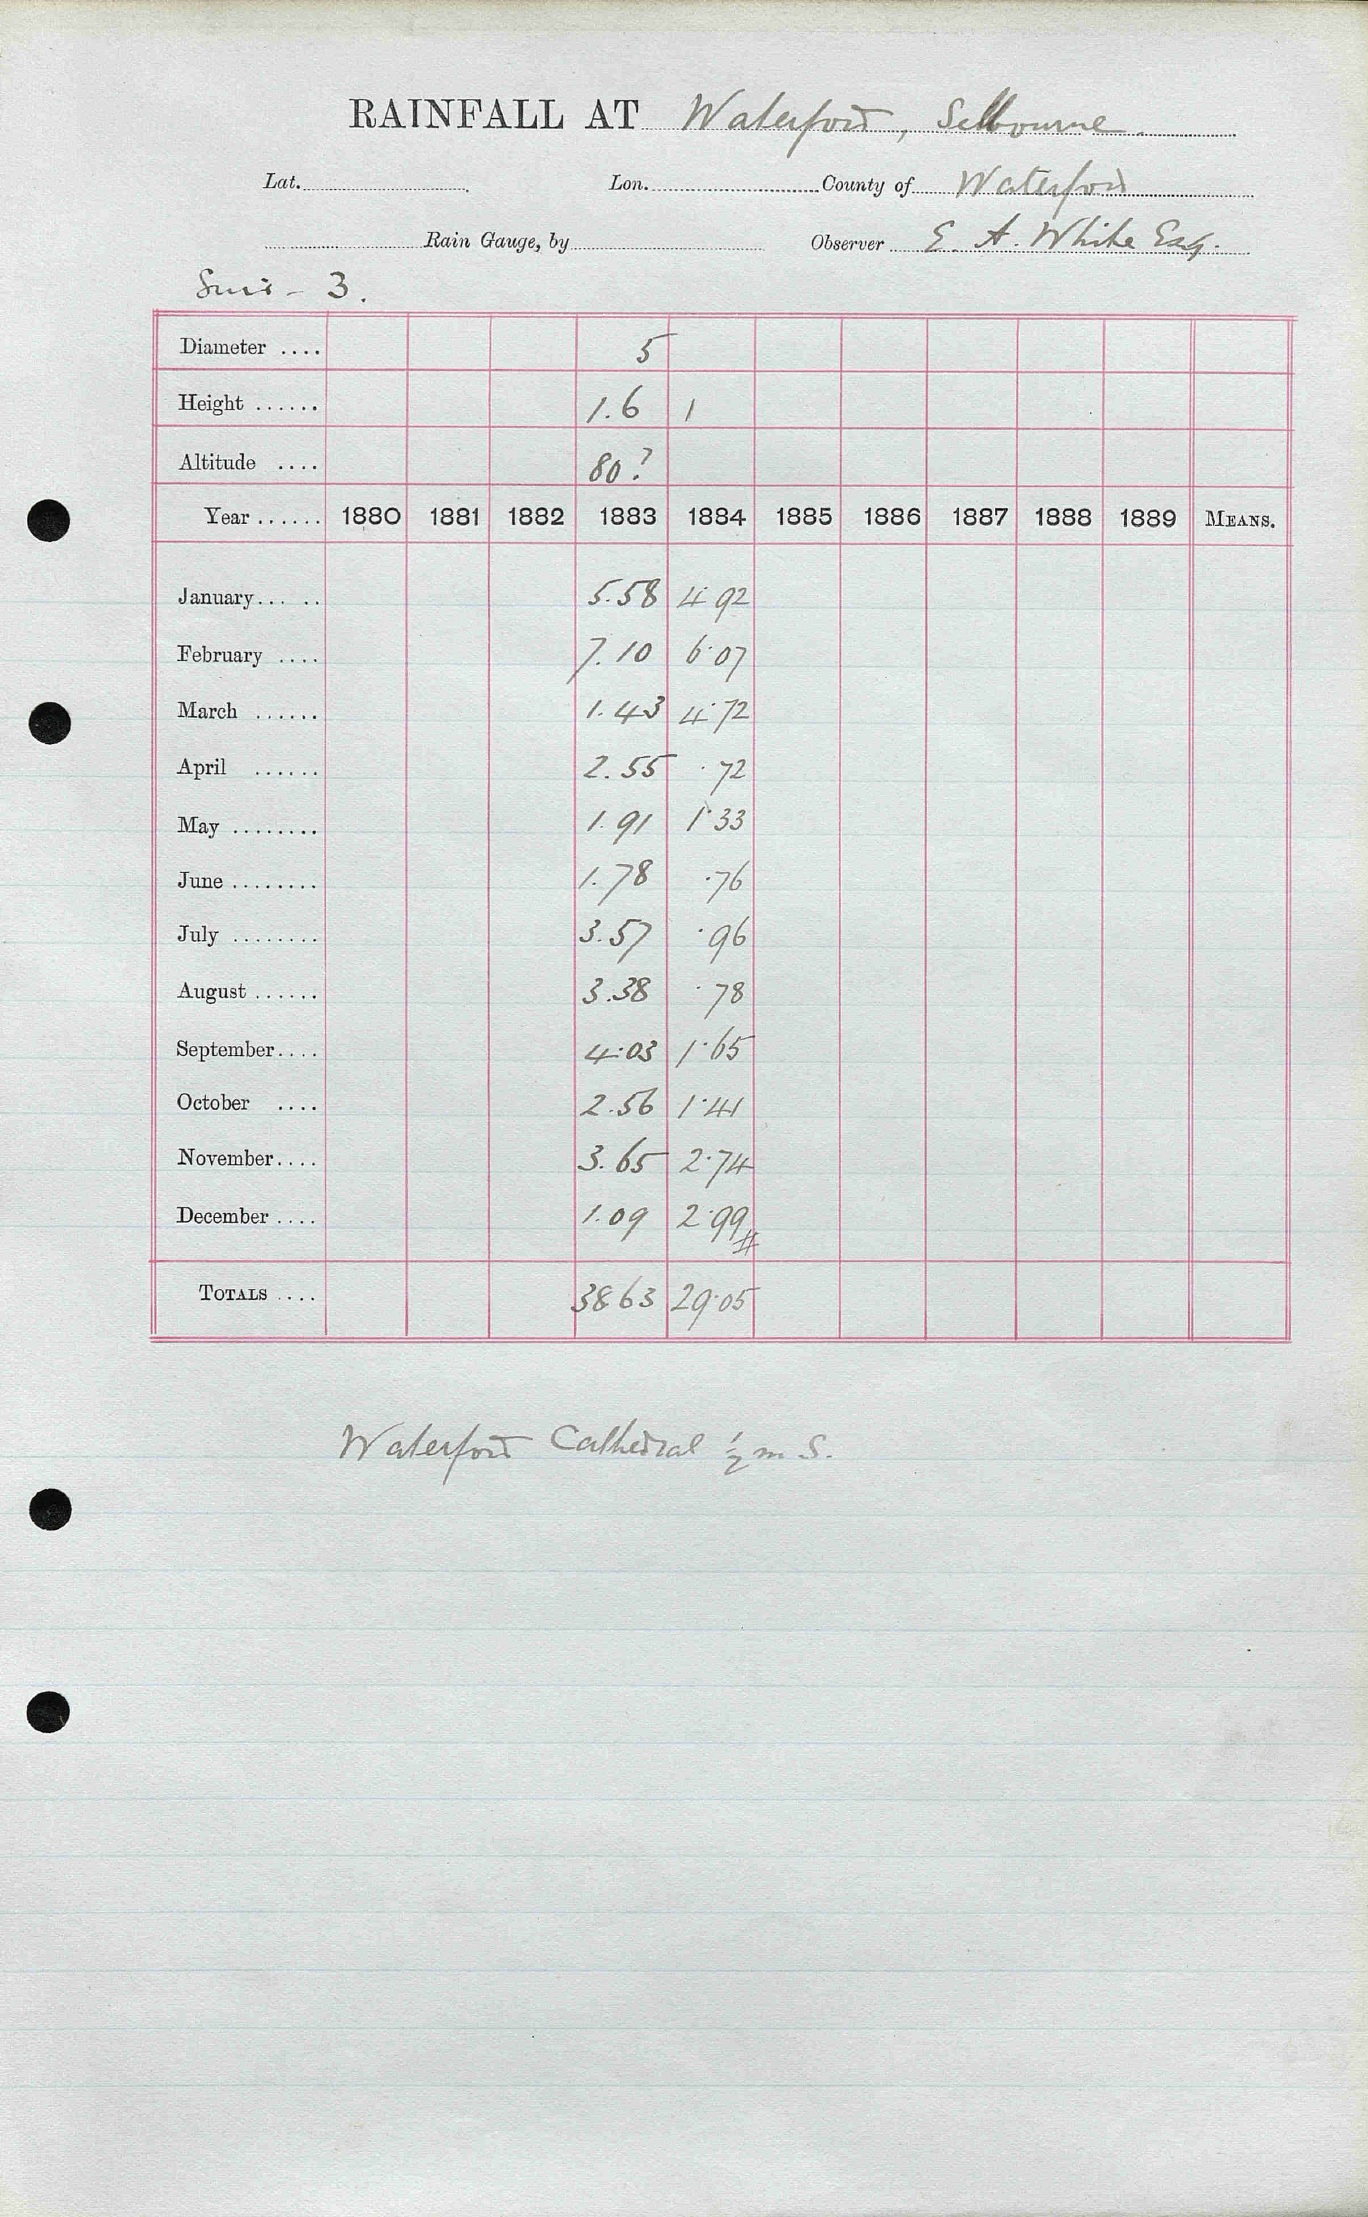 RAINFALL AT Waterford, Selbourne.
Lat. Lon. County of Waterford
Rain Gauge, by Observer E. A. White Esq.
3.
Diameter .... 5
Height ...... 1.6 1
Altitude .... 80?
Year ...... 1880 1881 1882 1883 1884 1885 1886 1887 1888 1889 MEANS.
January... .. 5.58 4.92
February .... 7.10 6.07
March ...... 1.43 4.72
April ...... 2.55 .72
May ........ 1.91 1.33
June ........ 1.78 .76
July ........ 3.57 .96
August ...... 3.38 .78
September.... 4.03 1.65
October .... 2.56 1.41
November.... 3.65 2.74
December .... 1.09 2.99
TOTALS .... 38 63 29.05
Waterford Cathedral ½ m S.